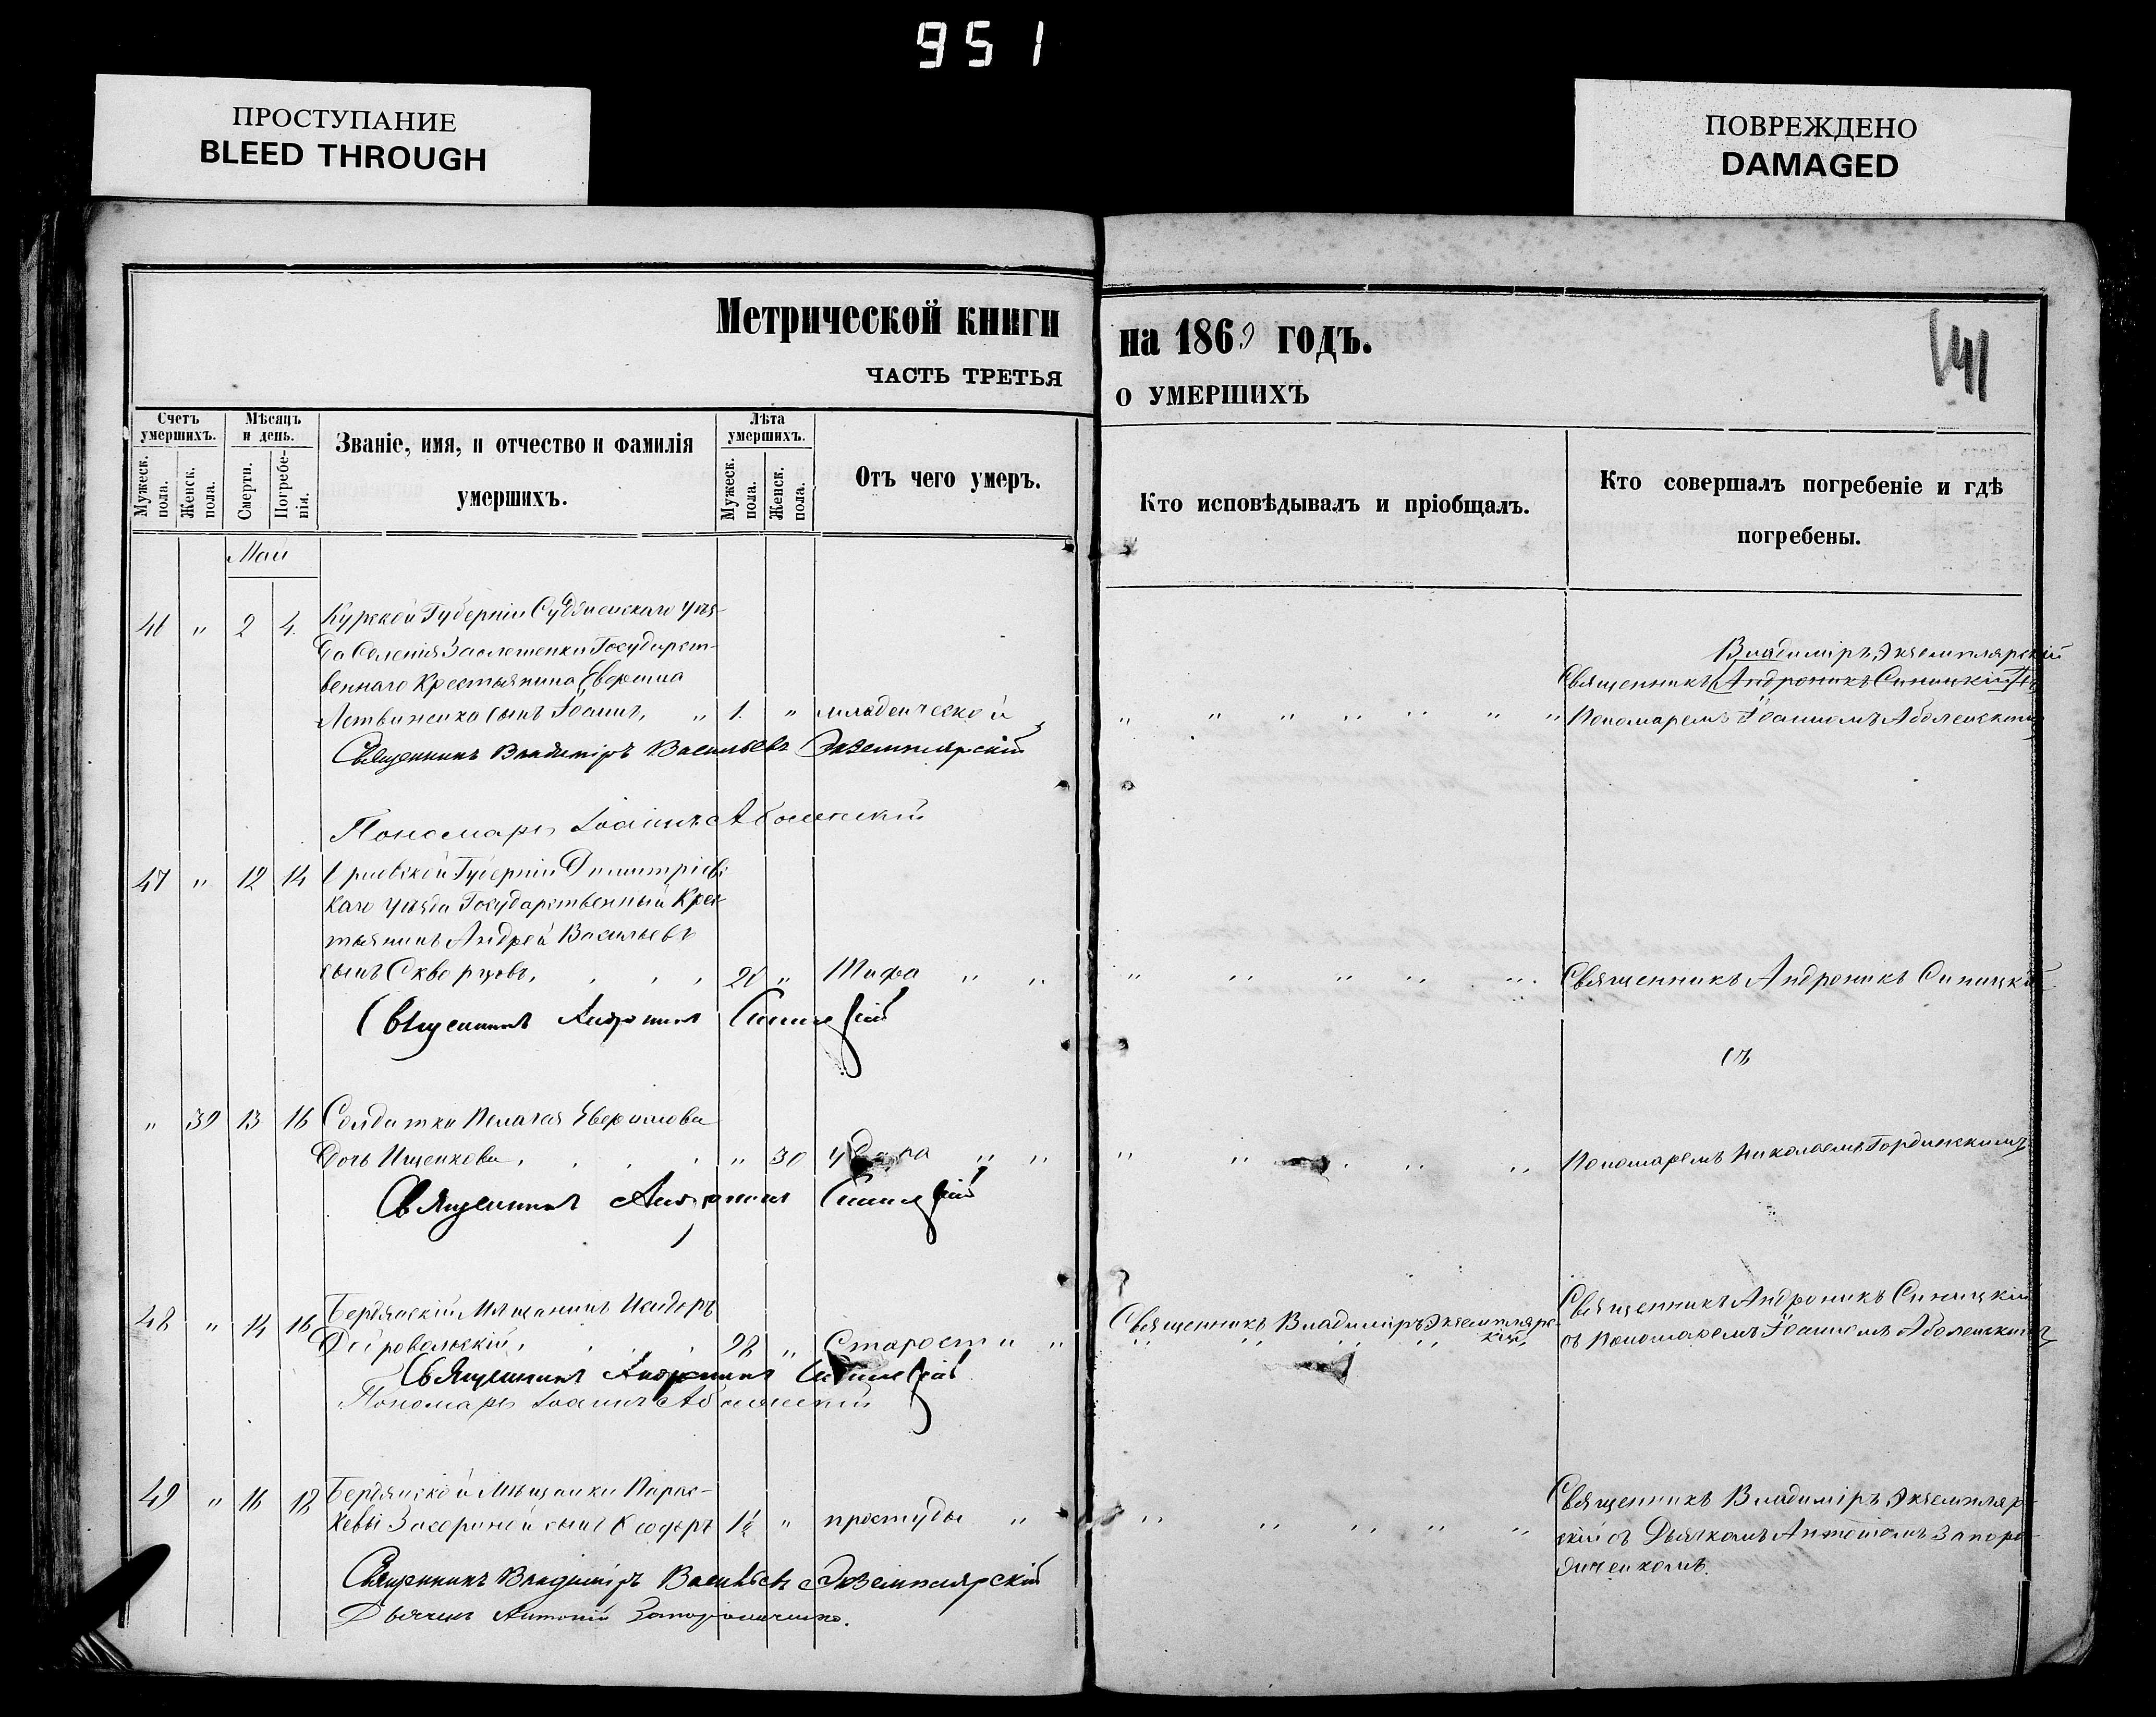 951
ПРОСТУПАНИЕ
BLEED THROUGH
ПОВРЕЖДЕНО
DAMAGED
Метрической книги
ЧАСТЬ ТРЕТЬЯ
на 1869 годъ.
О УМЕРШИХЪ
Счетъ умершихъ.
Мужеск. пола.
Женск. пола.
Мѣсяцъ и день.
Смерти.
Погребенія.
Званіе, имя, и отчество и фамилія
умершихъ.
Лѣта умершихъ.
Мужеск. пола.
Женск. пола.
Отъ чего умеръ.
Кто исповѣдывалъ и пріобщалъ.
Кто совершалъ погребеніе и гдѣ
погребены.
Май
46 " 2 4. Курской Губерніи Суджанскаго Уѣз-
Государст-
веннаго Крестьянина Евфима
сынъ Іоаннъ, " 1. " младенческой
Владиміръ Экземплярскій
Священникъ Андроникъ Синицкій съ
Пономаремъ Іоанномъ Аболенскимъ
Священникъ Владиміръ Васильевъ Экземплярскій
Пономарь Іоаннъ Аболенскій
47 " 12 14 Губерніи Димитріевс-
каго уѣзда Государственный Крес-
тьянинъ Андрей Васильевъ
сынъ Скворцовъ, " Тифа " "
Священникъ Андроникъ Синицкій
Священникъ Андроникъ Синицкій
съ
" 39 13 16 Солдатка Пелагея Евфимова
Дочь Ищенкова, " 30 удара " "
Пономаремъ Николаемъ Гординскимъ
Священникъ Андроникъ Синицкій
48 " 14 16 Бердянскій Мѣщанинъ Исидоръ
98 " Старости "
Священникъ Владиміръ Экземплярс-
кій
Священникъ Андроникъ Синицкій
съ Пономаремъ Іоанномъ Аболенскимъ
Священникъ Андроникъ Синицкій
Пономарь Іоаннъ Аболенскій
49 " 16 18 Бердянской Мѣщанки Парас-
кевы сынъ Ѳеодоръ 1½ " простуды "
Священникъ Владиміръ Экземпляр-
скій съ Дьячкомъ Антоніемъ Запоро-
жченкомъ.
Священникъ Владиміръ Васильевъ Экземплярскій
Дьячекъ Антоній Запорожченко.